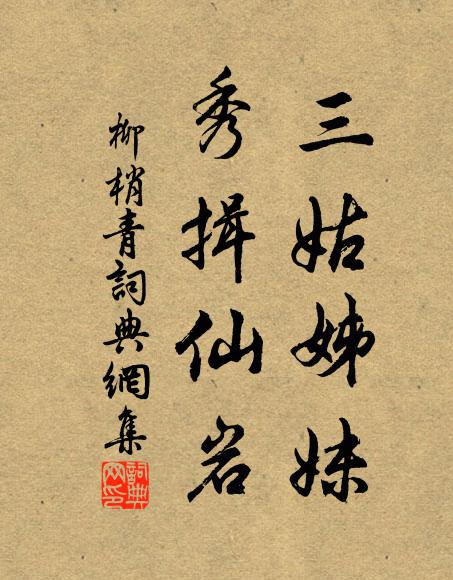 三姑姊妹
秀揖仙岩
柳梢青詞典網集
詞典网印